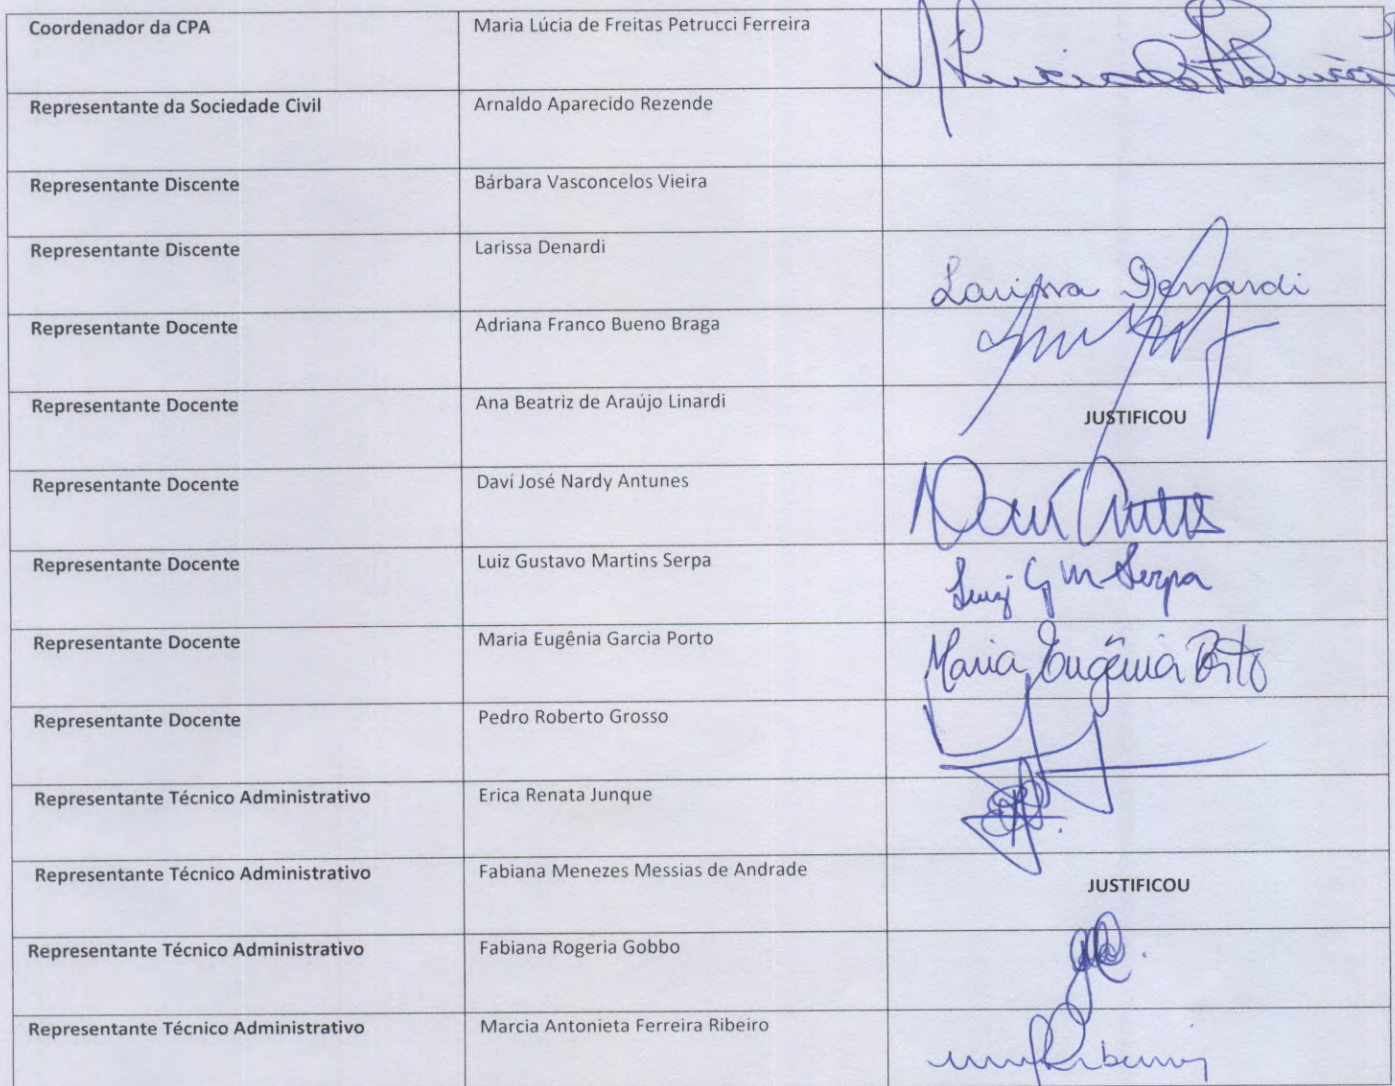 Coordenador da CPA Maria Lúcia de Freitas Petrucci Ferreira
Representante da Sociedade Civil Arnaldo Aparecido Rezende
Representante Discente Bárbara Vasconcelos Vieira
Representante Discente Larissa Denardi Larissa Denardi
Representante Docente Adriana Franco Bueno Braga
Representante Docente Ana Beatriz de Araújo Linardi JUSTIFICOU
Representante Docente Daví José Nardy Antunes Davi Antunes
Representante Docente Luiz Gustavo Martins Serpa Luiz G M Serpa
Representante Docente Maria Eugênia Garcia Porto Maria Eugênia Porto
Representante Docente Pedro Roberto Grosso
Representante Técnico Administrativo Erica Renata Junque
Representante Técnico Administrativo Fabiana Menezes Messias de Andrade JUSTIFICOU
Representante Técnico Administrativo Fabiana Rogeria Gobbo
Representante Técnico Administrativo Marcia Antonieta Ferreira Ribeiro